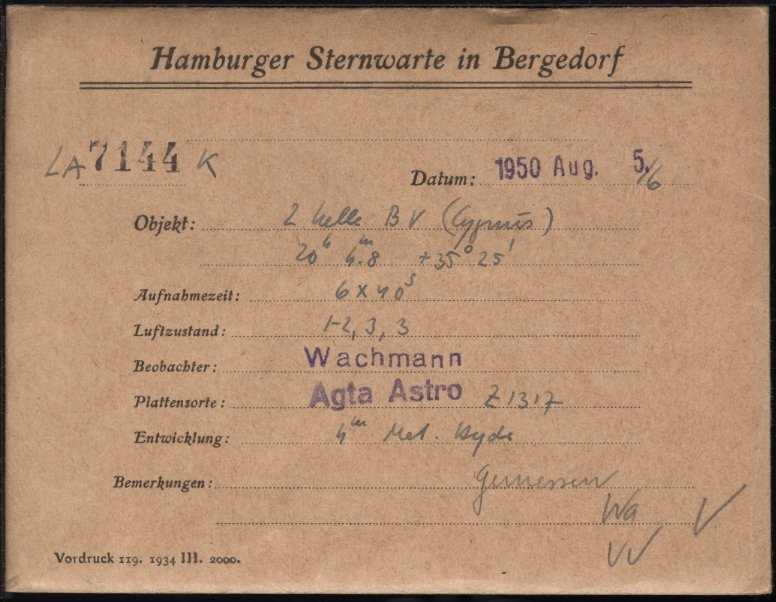 Hamburger Sternwarte in Bergedorf
LA 7144 K
Datum: 1950 Aug. 5./6
Objekt: 2 helle BV (Cygnus)
20h 4m.8 +35° 25'
Aufnahmezeit: 6 x 40s
Luftzustand: 1-2, 3, 3
Beobachter: Wachmann
Plattensorte: Agfa Astro Z1317
Entwicklung: 4m Met. Hydr
Bemerkungen: Gemessen
Wa V
VV
Vordruck 119. 1934 III. 2000.